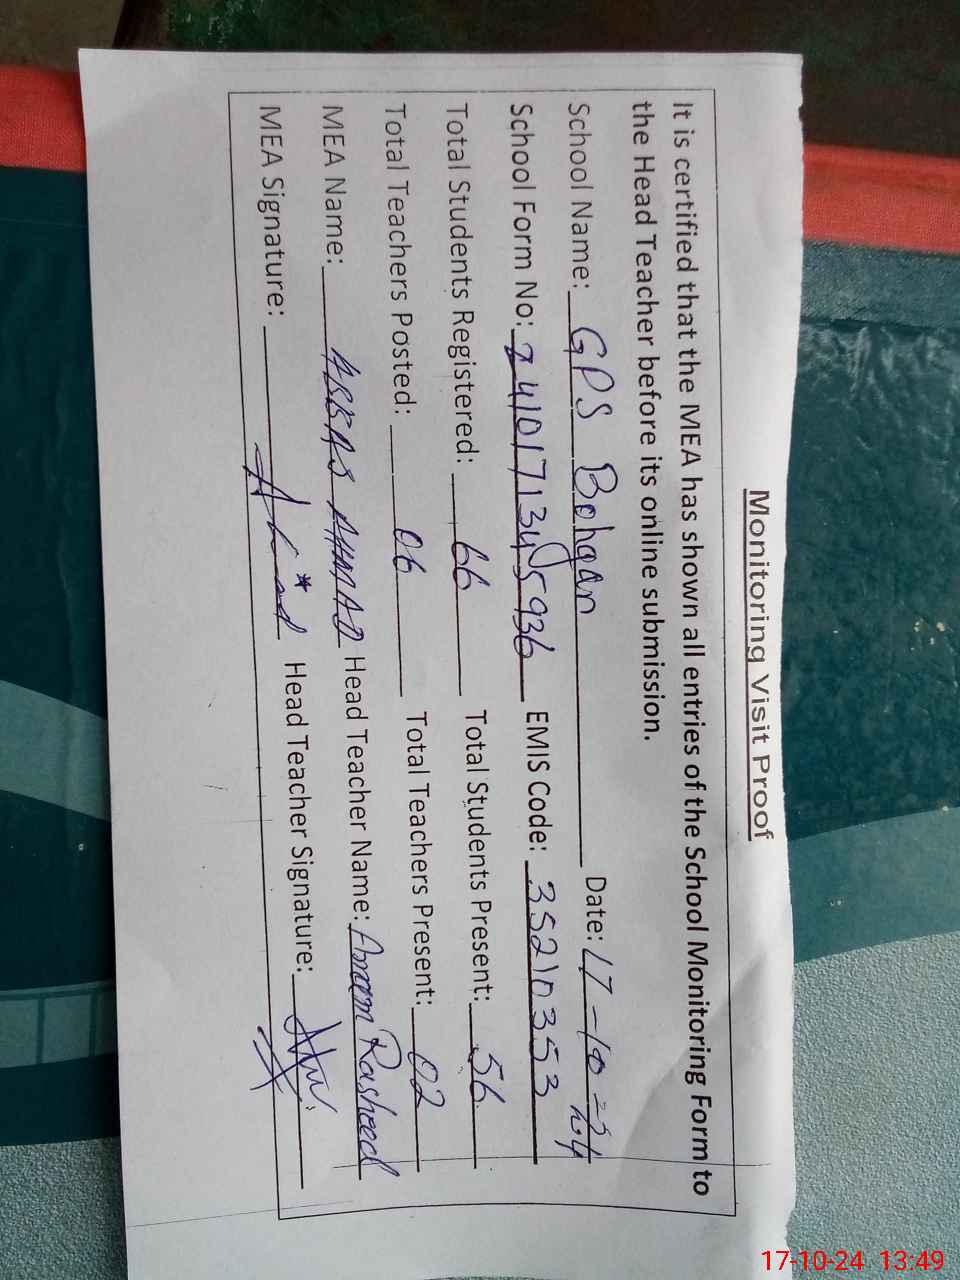 Monitoring Visit Proof
It is certified that the MEA has shown all entries of the School Monitoring Form to
the Head Teacher before its online submission.
School Name: GPS Bohgan Date: 17-10-24
School Form No: 2410171345936 EMIS Code: 35210353
Total Students Registered: 66 Total Students Present: 56
Total Teachers Posted: 06 Total Teachers Present: 02
MEA Name: ABBAS AHMAD Head Teacher Name: Anam Rasheed
MEA Signature: Head Teacher Signature:
17-10-24 13:49